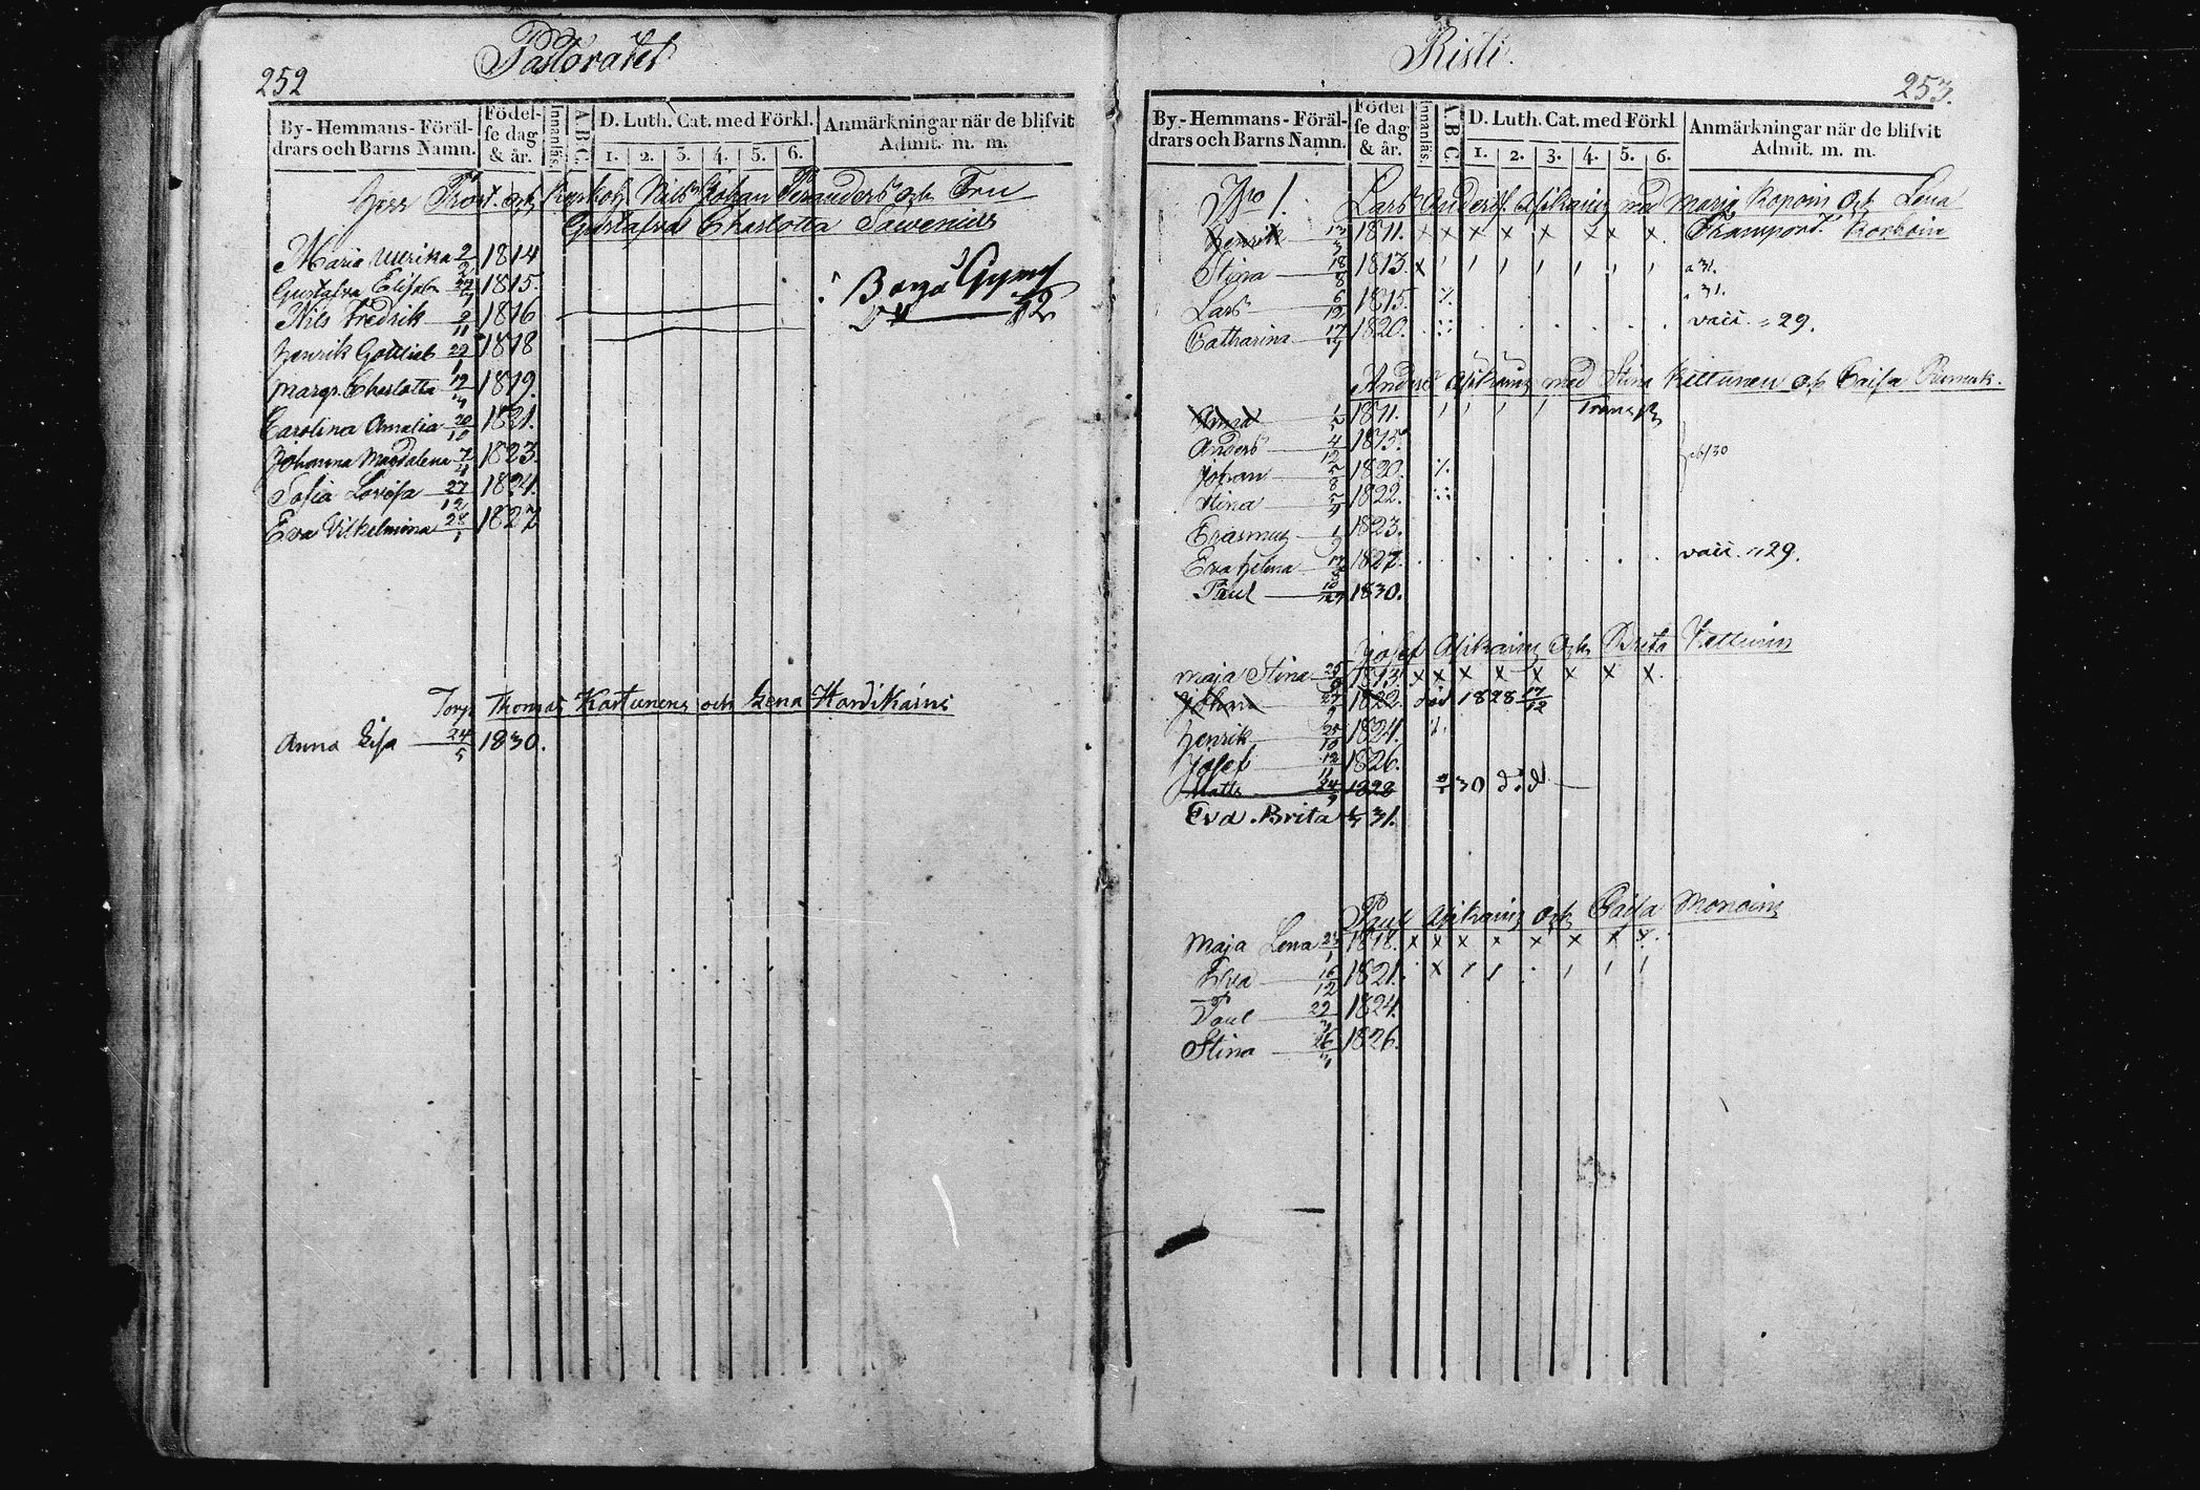 252
Pastoratet
By- Hemmans- Föräl-
drars och Barns Namn.
Födel-
se dag
& år.
Innanläs.
A.B.C.
D. Luth. Cat. med Förkl.
1. 2. 3. 4. 5. 6.
Anmärkningar när de blifvit
Admit. m. m.
Herr Prost. och Nils Johan Perander och Fru
Gustafva Charlotta Sawenius
Maria Ulrika 2/2 1814
Gustafva Elisab. 1815.
Nils Fredrik 9/11 1816
Borgå Gymn
Henrik Gottlieb 1818
Margr. Charlotta 1819.
Carolina Amalia 20/10 1821.
Johanna Magdalena 1823.
Sofia Lovisa 27/12 1824.
Eva Vilhelmina 28/1 1827
Torp. Thomas Kartunens och Lena Hardikains
Anna Lisa 24/5 1830.
Risti.
253.
By- Hemmans- Föräl-
drars och Barns Namn.
Födel-
se dag
& år.
Innanläs.
A.B.C.
D. Luth. Cat. med Förkl
1. 2. 3. 4. 5. 6.
Anmärkningar när de blifvit
Admit. m. m.
Nro 1. Lars Anderss. Asikains med Maria Kopoin och Lena
Korhoin
Henrik 13/3 1811. x x x x x x x x Transport.
Stina 18/8 1813. x a 31.
Lars 6/12 1815. 31.
Catharina 1820. vacc. 29.
Anders Asikains med Stina Kettunen och Caisa
Anna 1811. Transp.
Anders 4/12 1815.
Johan 5/8 1820.
Stina 1822.
Erasmus 1/9 1823.
Eva Helena 1827. vacc. 29.
Paul 1830.
Josef Asikains och Brita Kettunens
Maja Stina 1813. x x x x x x x x
Johan 1822. död 1828 17/12
Henrik 25/10 1824.
Josef 12/11 1826.
Matts 24/9 1828 30 död
Eva Brita 31.
Paul Asikains och Caisa Monoins
Maja Lena 1818. x x x x x x x x
Eva 16/12 1821. x
Paul 1824.
Stina 1826.